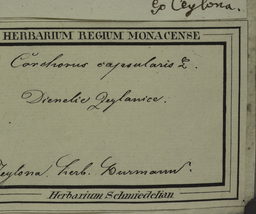 Ex Ceylona.
HERBARIUM REGIUM MONACENSE
Corchorus capsularis L.
Zeylona. herb. Burmann.
Herbarium Schmiedelian